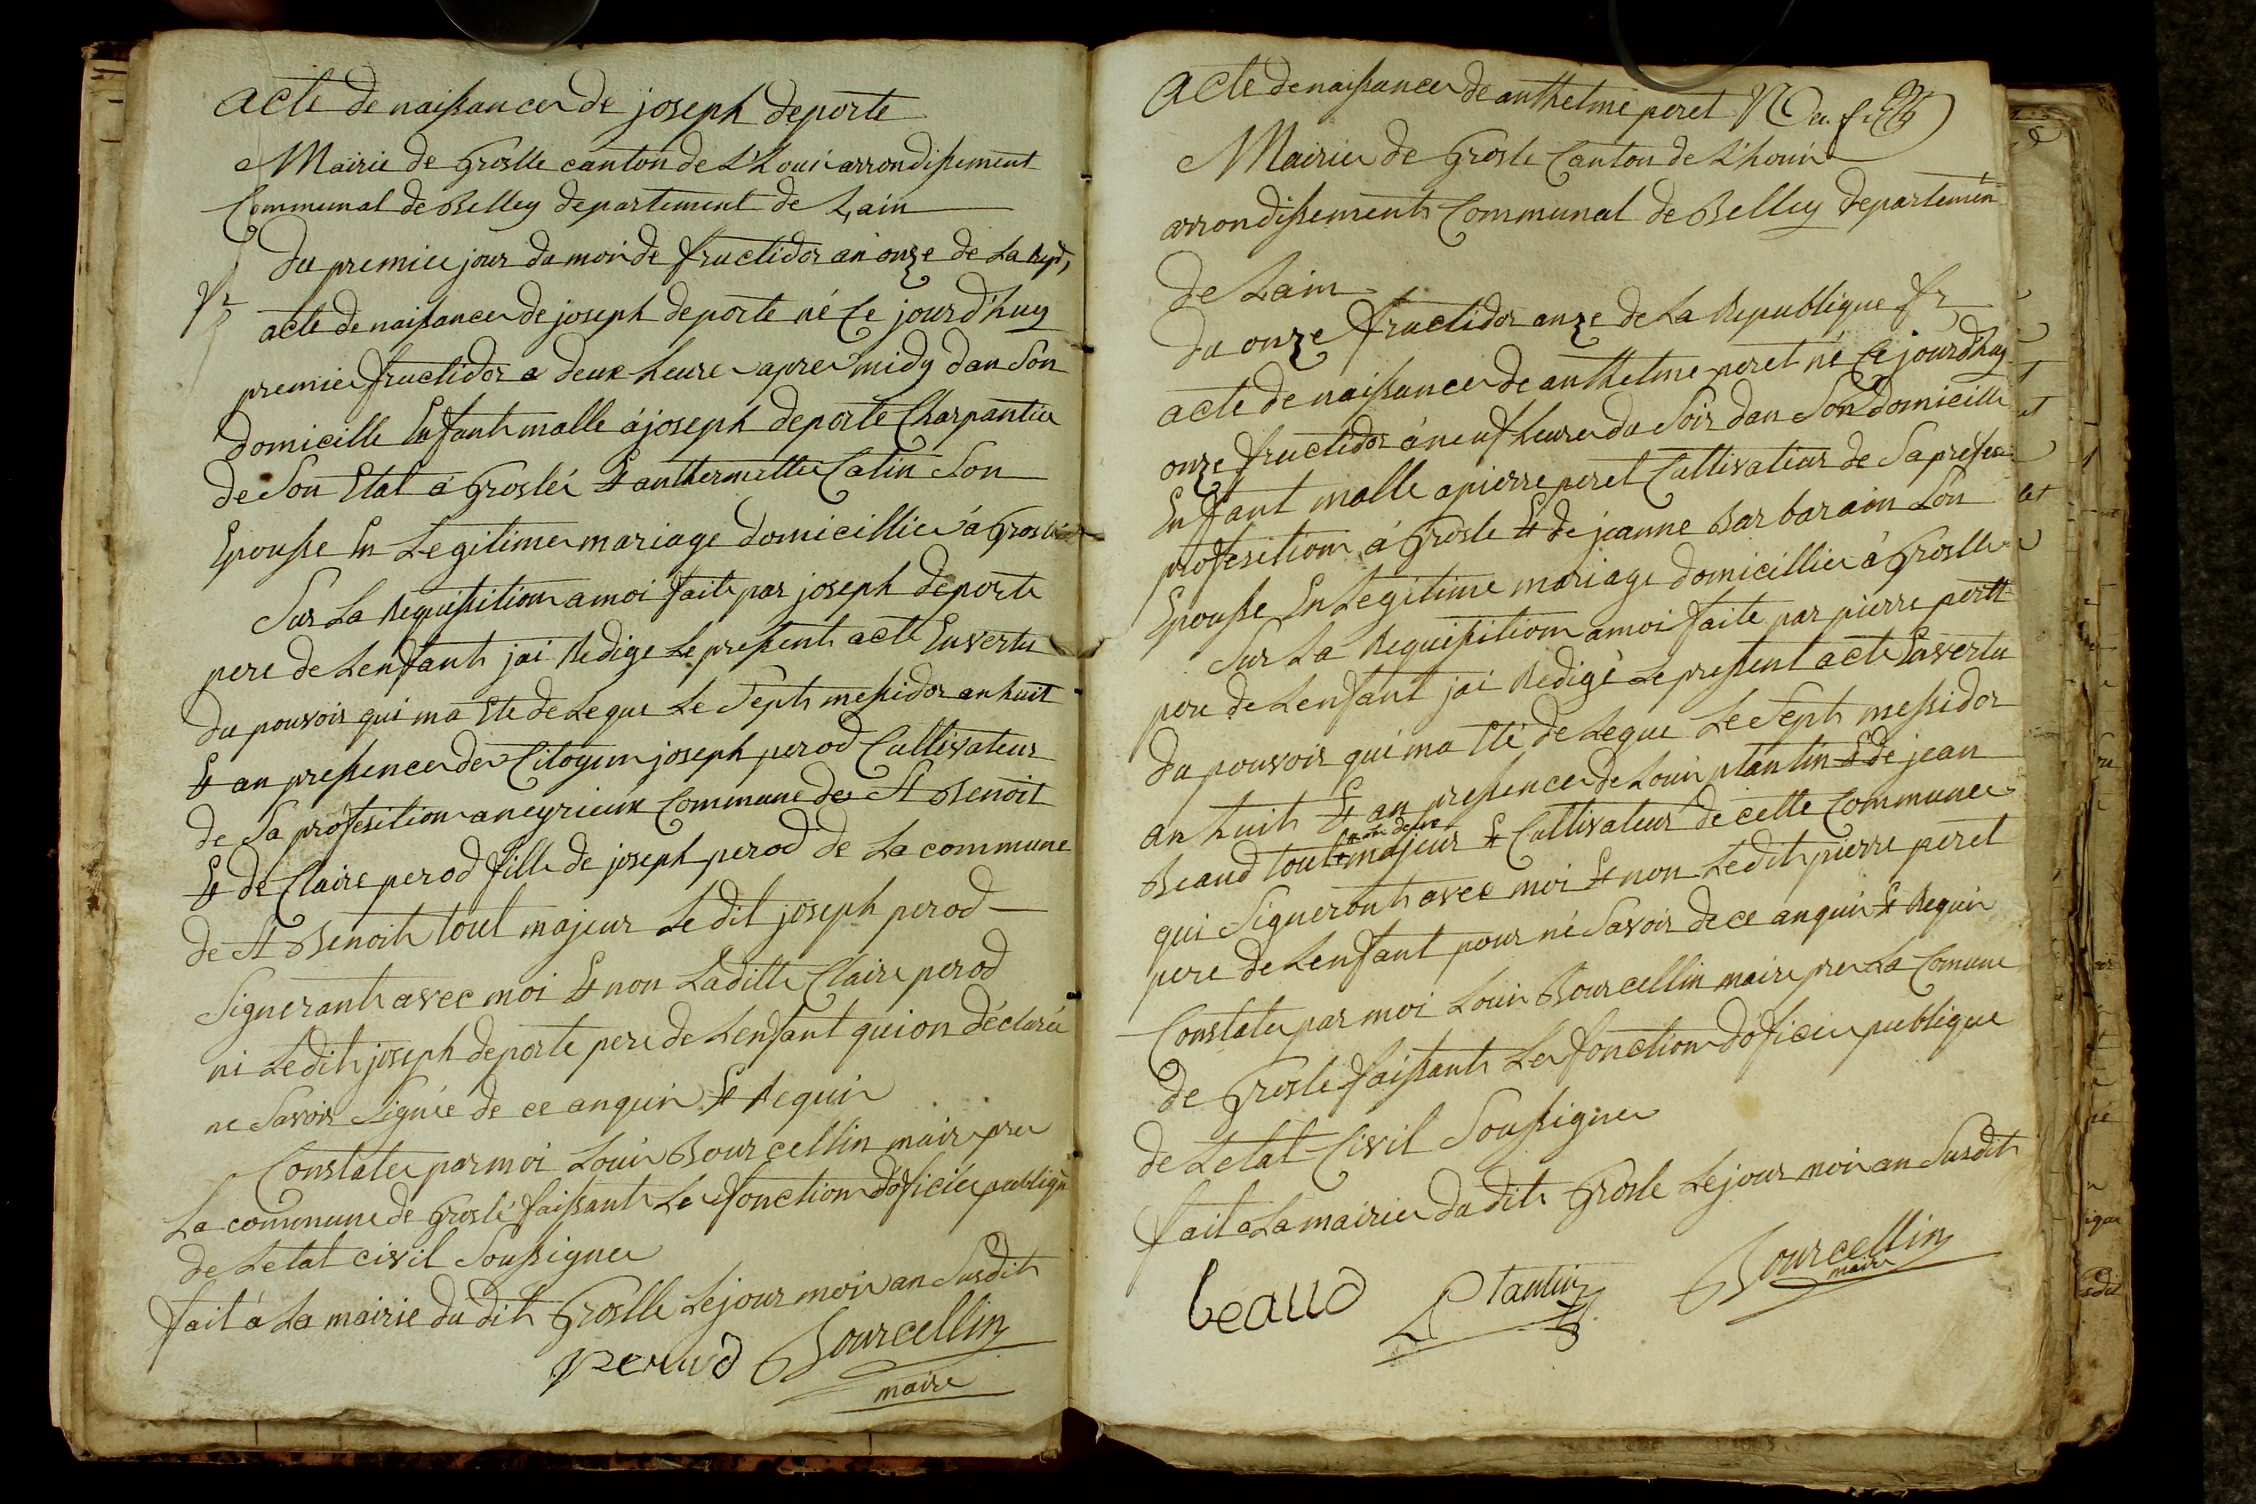 acte de naissance de joseph deporte
Mairie de Groslle canton de L'houi arrondissement
Communal de Belley departement de L,ain
du premier jour du moi de fructidor an onze de La Rep,
acte de naissance de joseph deporte né Ce jourd'huy
premier fructidor a deux heure apres midy dan Son
domicille Enfant malle á joseph deporte Charpantier
de Son Etat á Groslé & anthermette Catin Son
Epousse En Legitime mariage domicillie á Grosle
Sur La Requisition a moi faite par joseph deporte
pere de Lenfant jai Redige Le present acte En vertu
du pouvoir qui ma Ete de Legue Le Sept messidor an huit
& an presence de Citoyen joseph perod Cultivateur
de Sa profesition a neyrieux Commune de St Benoit
& de Claire perod fille de joseph perod de La commune
de St Benoit tout majeur Le dit joseph perod
Signerant avec moi & non Laditte Claire perod
ni Ledit joseph deporte pere de Lenfant qui on déclaré
ne Savoir Signée de ce anquis & Requis
Constater par moi Loui Bourcellin mair pre
La commune de Groslé faissant Le fonction d'óficier publiq
de Letat civil Soussigner
fait á La mairie du dit Groslle Le jour moi an Susdit
perud Bourcellin
maire
Acte de naissance de anthelme peret
Mairie de Grosle Canton de L'houi
arrondissement Communal de Belley departemen
de Lain
du onze fructidor onze de La Republique fr
acte de naissance de anthelme peret né Ce jourd'huy
onze fructidor á neuf heure du Soir dan Son domicille
Enfant malle a pierre peret Cultivateur de Sa
profesition á Grosle & de jeanne Barbarain Son
Epousse En Legitime mariage domicillie á Groslle
Sur La Requisition a moi faite par pierre perett
pere de Lenfant jai Redigé Le present acte En vertu
du pouvoir qui ma Eté de Legue Le Sept messidor
an huit & an presence de Loui plantin & de jean
Beaud tout majeur & Cultivateur de cette Commune
qui Signeront avec moi & non Ledit pierre peret
pere de Lenfant pour né Savoir de ce anquis & Requis
Constater par moi Loui Bourcellin maire pre La Comune
de Grosle faissant Le fonction d'óficier publique
de Letat Civil Soussigner
fait a La mairie du dit Grosle Le jour moi an Susdit
beaud Plantin Bourcellin
maire